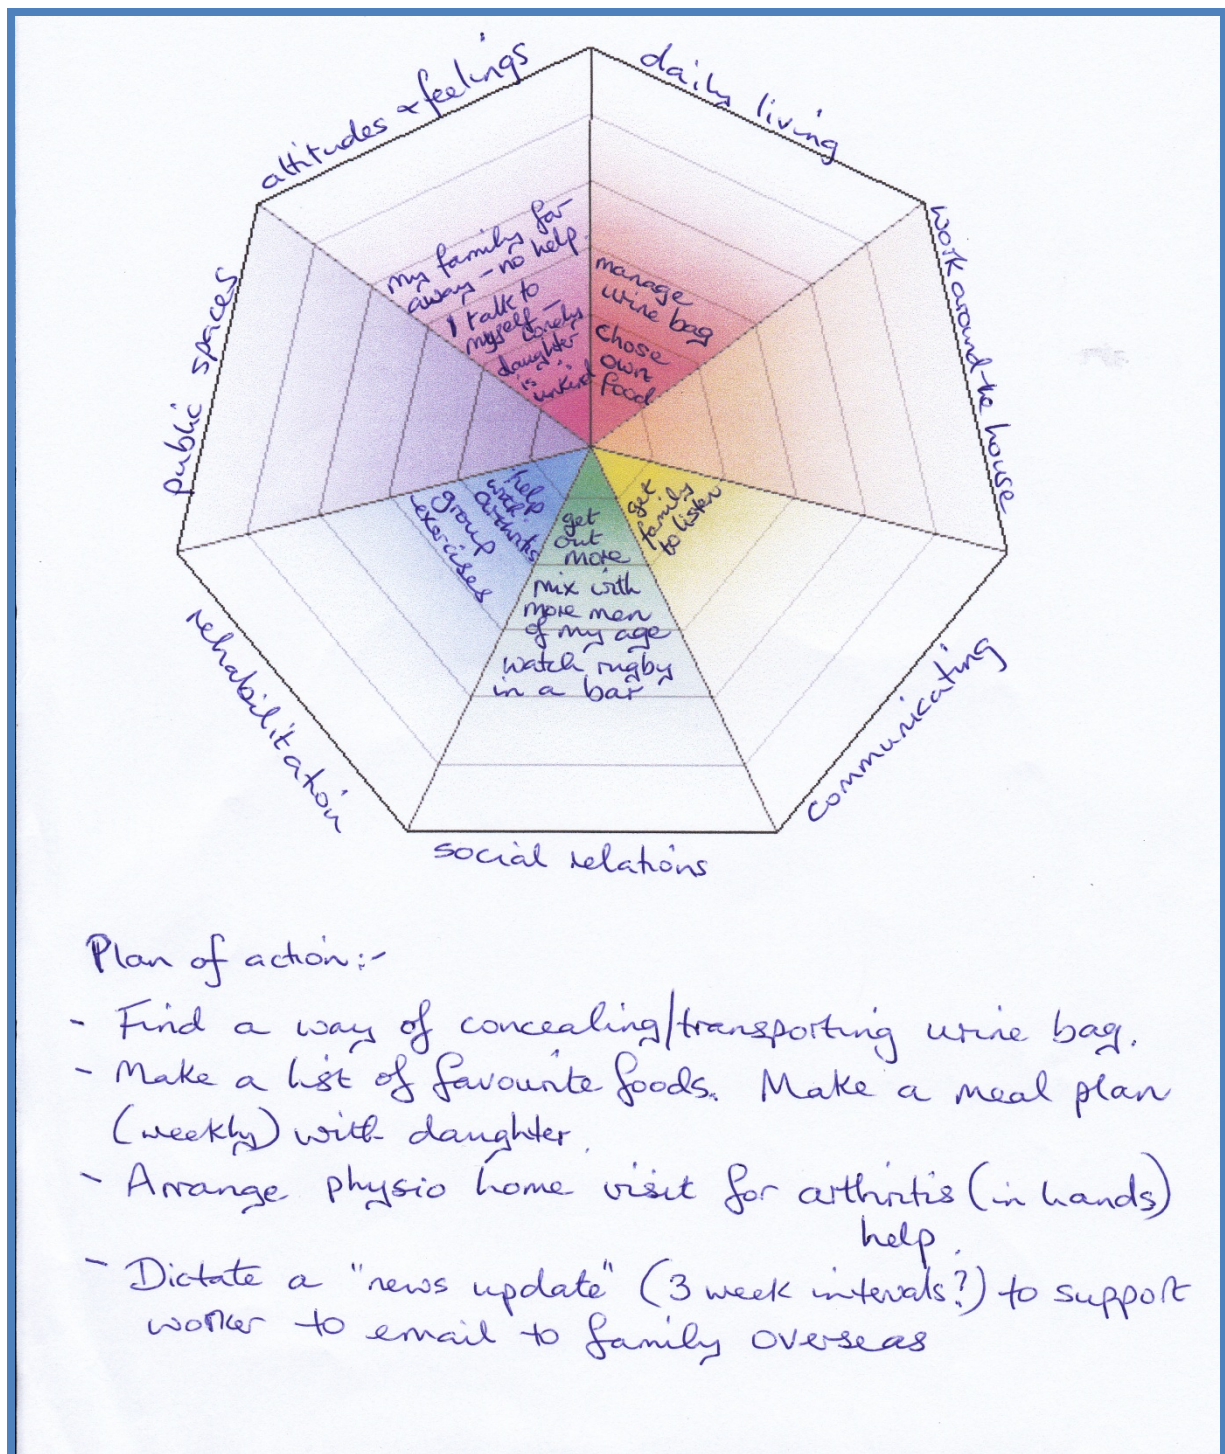 attitudes & feelings
daily living
work around the house
communicating
social relations
rehabilitation
public spaces
my family far
away - no help
I talk to
myself -
lonely
daughter
is unkind
manage
urine bag
chose
own
food
get
family
to listen
get
out
more
mix with
more men
of my age
watch rugby
in a bar
help
with
arthritis
group
exercises
Plan of action:-
- Find a way of concealing/transporting urine bag.
- Make a list of favourite foods. Make a meal plan
(weekly) with daughter.
- Arrange physio home visit for arthritis (in hands)
help.
- Dictate a "news update" (3 week intervals?) to support
worker to email to family overseas